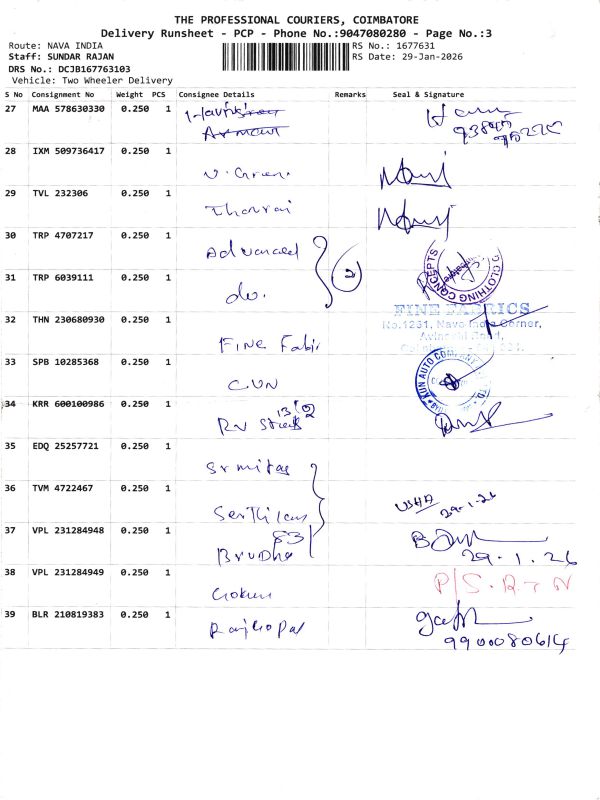 THE PROFESSIONAL COURIERS, COIMBATORE
Delivery Runsheet - PCP - Phone No.:9047080280 - Page No.:3
Route: NAVA INDIA RS No.: 1677631
Staff: SUNDAR RAJAN RS Date: 29-Jan-2026
DRS No.: DCJB167763103
Vehicle: Two Wheeler Delivery
S No Consignment No Weight PCS Consignee Details Remarks Seal & Signature
27 MAA 578630330 0.250 1
28 IXM 509736417 0.250 1
29 TVL 232306 0.250 1
Tharrai
30 TRP 4707217 0.250 1
Advanced
2
CLOTHING CONCEPTS
31 TRP 6039111 0.250 1
do.
32 THN 230680930 0.250 1
FINE FABRICS
No.1231, Nava India Corner,
Avinashi Road,
FINE Fabri
33 SPB 10285368 0.250 1
CUN
KUN AUTO COMPANY
34 KRR 600100986 0.250 1
RV Streets
35 EDQ 25257721 0.250 1
Srmitas
36 TVM 4722467 0.250 1
USHA 29-1-26
37 VPL 231284948 0.250 1
Brudha
29.1.26
38 VPL 231284949 0.250 1
P/S.RTN
Gokul
39 BLR 210819383 0.250 1
Rajgopal
9900080614